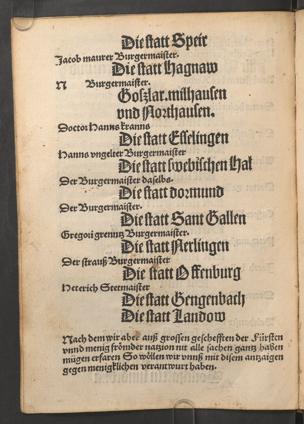 Die statt Speir
Jacob maurer Burgermaister.
Die statt Hagnaw
N Burgermaister.
Goszlar. milhausen
vnd Northausen.
Doctor Hanns kranns
Die statt Esselingen
Hanns vngelter Burgermaister
Die statt swebischen Hal
Der Burgermaister daselbs.
Die statt dormund
Der Burgermaister.
Die statt Sant Gallen
Gregori grenntz Burgermaister.
Die statt Nerlingen
Der strauß Burgermaister
Die statt Offenburg
Heterich Stetmaister
Die statt Gengenbach
Die statt Landow
Nach dem wir aber auß grossen geschefften der Fürsten
vnnd menig frömder natzion nit alle sachen gantz haben
mügen erfaren So wöllen wir vnnß mit disem antzaigen
gegen menigklichen verantwurt haben.